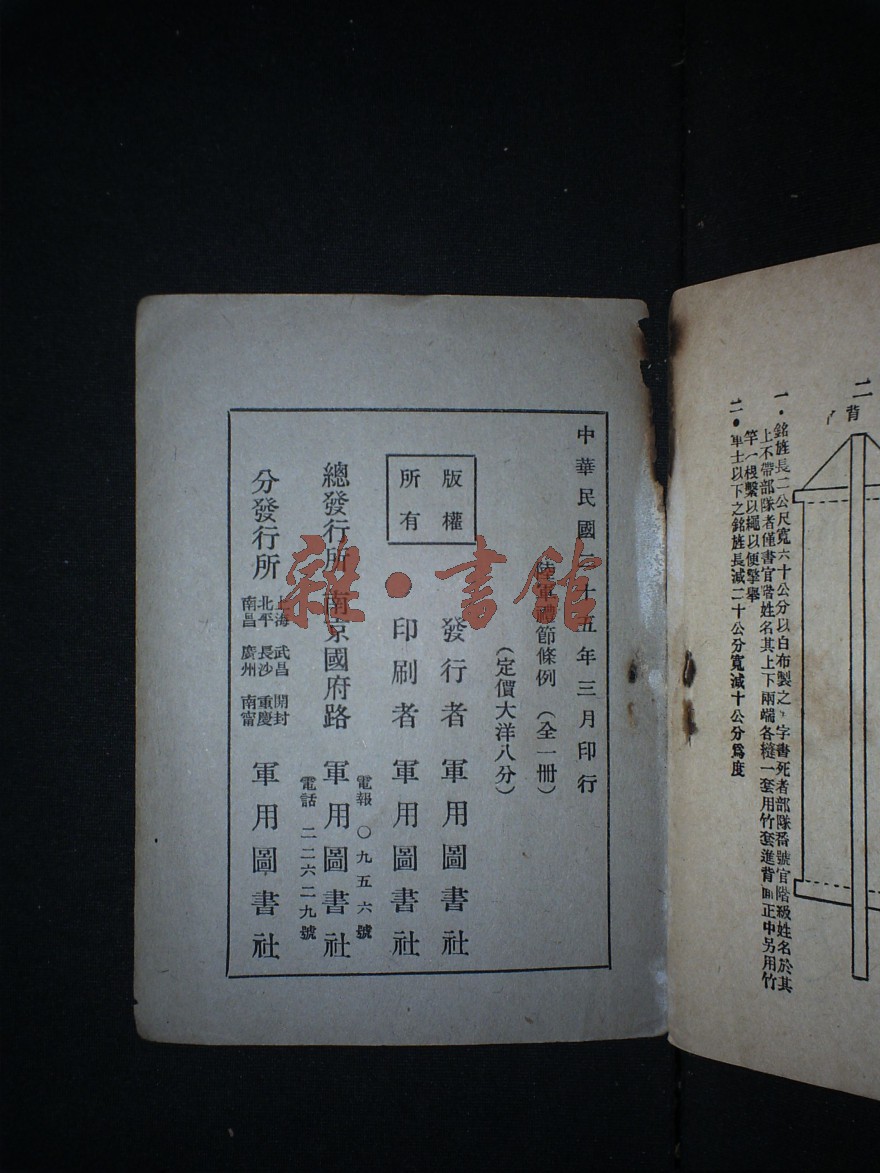 二
背
一・銘旌長二公尺寬六十公分以白布製之，字書死者部隊番號官階級姓名於其
上不帶部隊者僅書官階姓名其上下兩端各縫一套用竹套進背面正中另用竹
竿一根繫以繩以便擎舉
二・軍士以下之銘旌長減二十公分寬減十公分爲度
中華民國二十五年三月印行
陸軍禮節條例（全一冊）
（定價大洋八分）
版權
所有
發行者 軍用圖書社
印刷者 軍用圖書社
電報 〇九五六號
總發行所 南京國府路 軍用圖書社
電話 二二六二九號
分發行所
上海 武昌 開封
北平 長沙 重慶
南昌 廣州 南甯
軍用圖書社
雜・書館